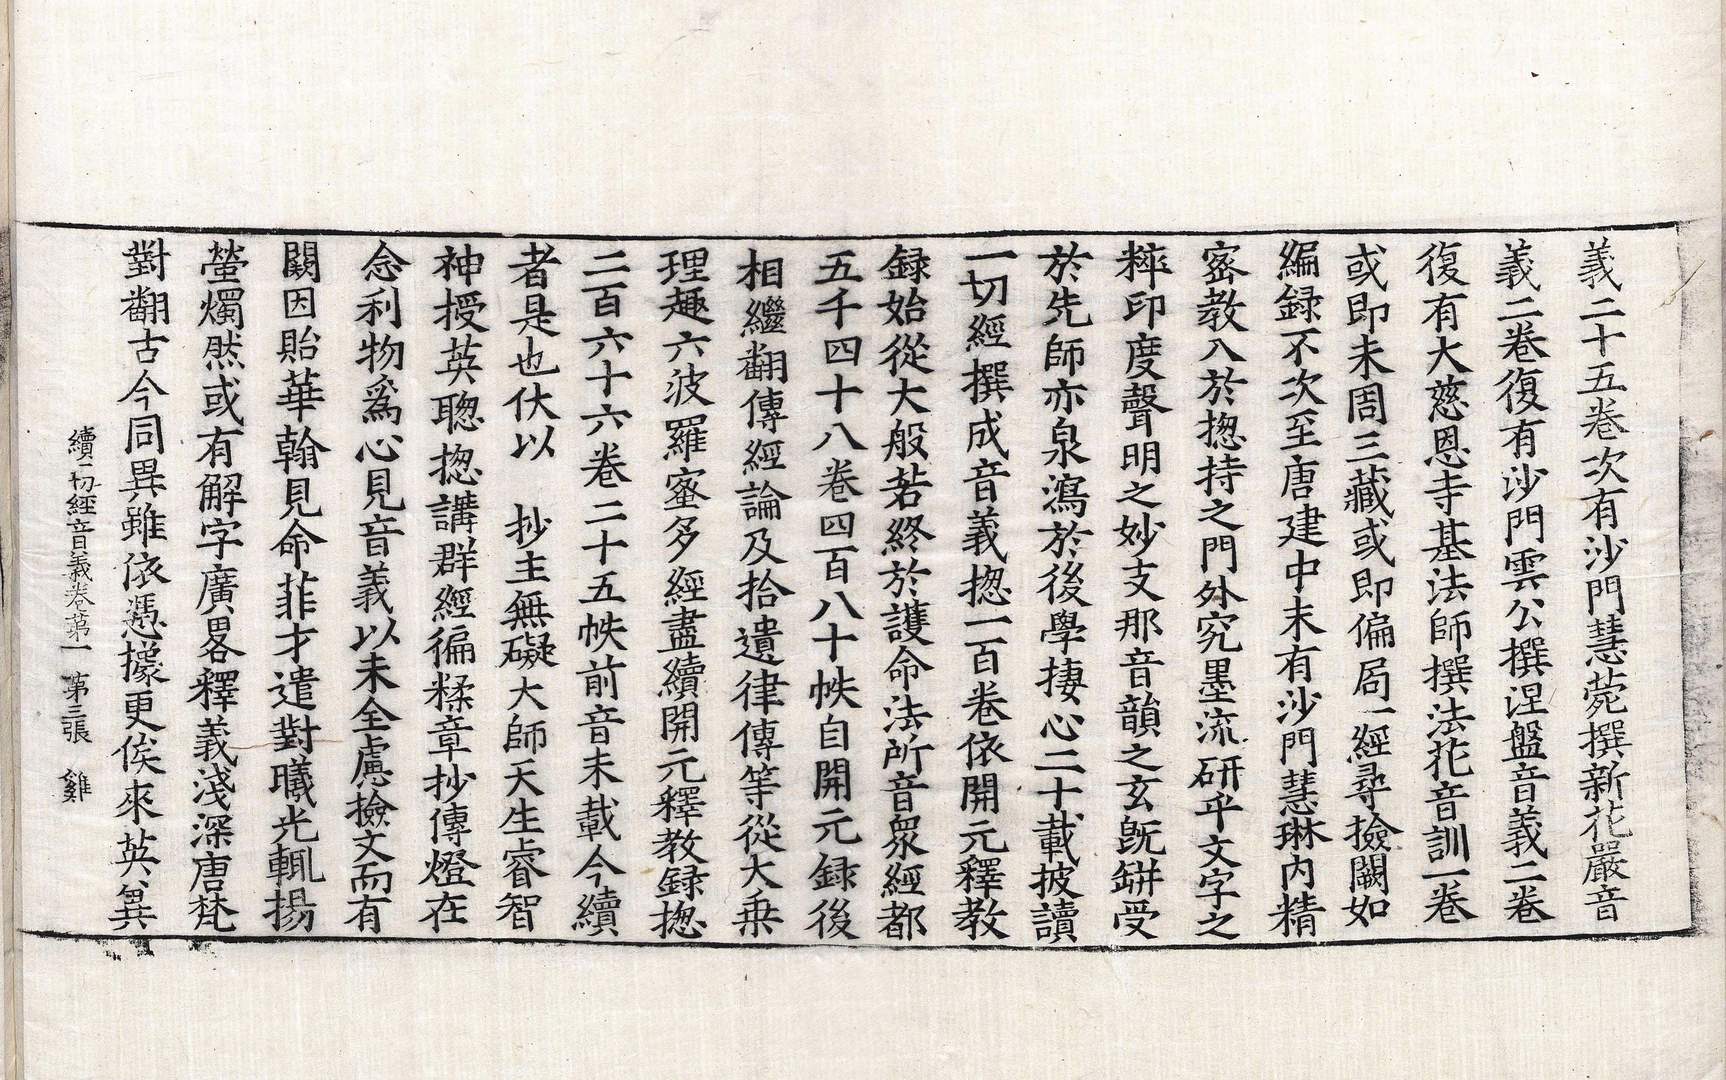 義二十五卷次有沙門慧菀撰新花嚴音
義二卷復有沙門雲公撰涅盤音義二卷
復有大慈恩寺基法師撰法花音訓一卷
或即未周三藏或即偏局一經尋撿闕如
編録不次至唐建中末有沙門慧琳内精
密教入於揔持之門外究墨流研乎文字之
粹印度聲明之妙支那音韻之玄旣缾受
於先師亦泉瀉於後學捿心二十載披讀
一切經撰成音義揔一百卷依開元釋教
録始從大般若終於護命法所音衆經都
五千四十八卷四百八十帙自開元録後
相繼翻傳經論及拾遺律傳等從大乗
理趣六波羅蜜多經盡續開元釋教録揔
二百六十六卷二十五帙前音未載今續
者是也伏以　抄主無礙大師天生睿智
神授英聦揔講群經徧糅章抄傳燈在
念利物爲心見音義以未全慮撿文而有
闕因貽華翰見命菲才遣對曦光輒揚
螢燭然或有解字廣畧釋義淺深唐梵
對翻古今同異雖依憑據更俟來英冀
續一切經音義卷第一　第三張　雞